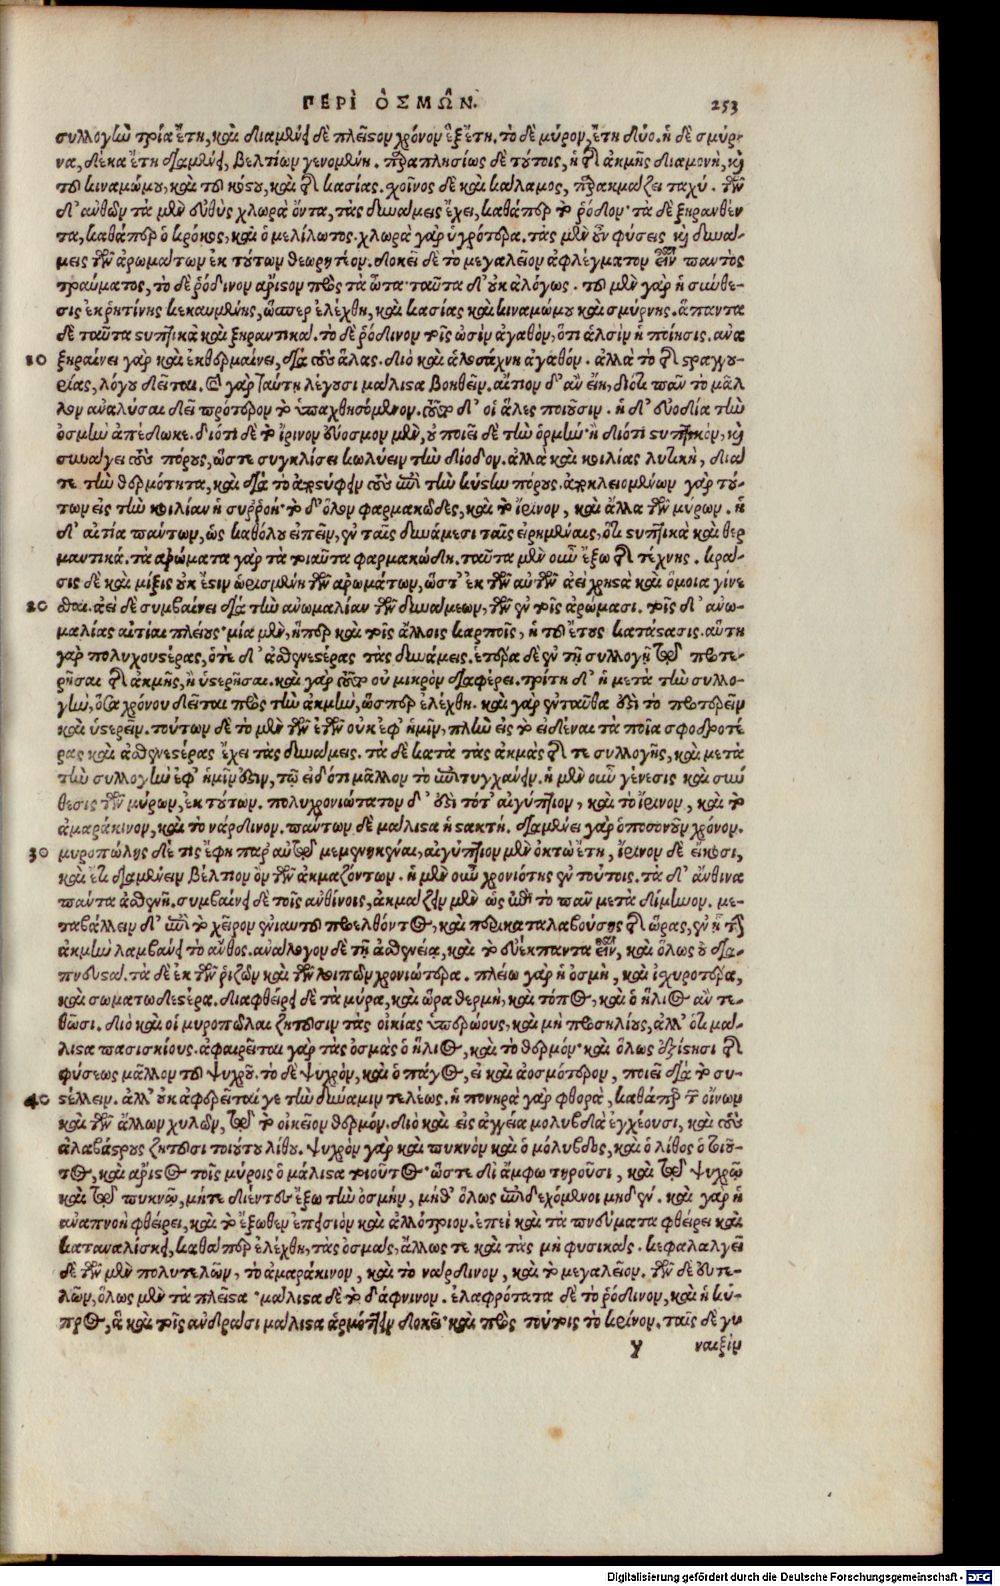 ΠΕΡῚ ὈΣΜΩ͂Ν. 253
συλλογὴν τρία ἔτη, καὶ διαμένει δὲ πλεῖστον χρόνον ἓξ ἔτη. τὸ δὲ μύρον, ἔτη δύο. ἡ δὲ σμύρ-
να, δέκα ἔτη διαμένει, βελτίων γενομένη. παραπλησίως δὲ τούτοις, ἡ τῆς ἀκμῆς διαμονὴ, καὶ
τοῦ κιναμώμου, καὶ τοῦ κόστου, καὶ τῆς κασίας. χοῖνος δὲ καὶ κάλαμος, παρακμάζει ταχύ. τῶν
δ' ἀνθῶν τὰ μὲν εὐθὺς χλωρὰ ὄντα, τὰς δυνάμεις ἔχει, καθάπερ τὸ ῥόδιον· τὰ δὲ ξηρανθέν
τα, καθάπερ ὁ κρόκος, καὶ ὁ μελίλωτος. χλωρὰ γὰρ ὑγρότερα. τὰς μὲν οὖν φύσεις καὶ δυνά-
μεις τῶν ἀρωμάτων ἐκ τούτων θεωρητέον. δοκεῖ δὲ τὸ μεγαλεῖον ἀφλέγματον εἶναι παντὸς
τραύματος, τὸ δὲ ῥόδινον ἄριστον πρὸς τὰ ὦτα· ταῦτα δ' οὐκ ἀλόγως. τοῦ μὲν γὰρ ἡ σύνθε-
σις ἐκ ῥητίνης κεκαυμένης, ὥσπερ ἐλέχθη, καὶ κασίας καὶ κιναμώμου καὶ σμύρνης. ἅπαντα
δὲ ταῦτα στυπτικὰ καὶ ξηραντικά. τὸ δὲ ῥόδινον τοῖς ὠσὶν ἀγαθὸν, ὅτι ἁλσὶν ἡ ποίησις. ἀνα
10 ξηραίνει γὰρ καὶ ἐκθερμαίνει, διὰ τοὺς ἅλας. διὸ καὶ ἁλοσάχνη ἀγαθόν. ἀλλὰ τὸ τῆς στραγγου-
ρίας, λόγου δεῖται. καὶ γὰρ ταύτῃ λέγουσι μάλιστα βοηθεῖν. αἴτιον δ' ἂν εἴη, διότι πᾶν τὸ μᾶλ
λον ἀναλύσαι δεῖ πρότερον τὸ ὑπαχθησόμενον. τοῦτο δ' οἱ ἅλες ποιοῦσιν. ἡ δ' εὐοδία τὴν
ὀσμὴν ἀπέδωκε. διότι δὲ τὸ ἴρινον εὔοσμον μὲν, οὐ ποιεῖ δὲ τὴν ὁρμὴν· ἢ διότι στυπτικὸν, καὶ
συνάγει τοὺς πόρους, ὥστε συγκλίσει κωλύειν τὴν δίοδον. ἀλλὰ καὶ κοιλίας λυτικὴ, διά
τε τὴν θερμότητα, καὶ διὰ τὸ ἀποστύφειν τοὺς ἐπὶ τὴν κύστιν πόρους. ἀποκλειομένων γὰρ τού-
των εἰς τὴν κοιλίαν ἡ συῤῥοή· τὸ δ' ὅλον φαρμακῶδες, καὶ τὸ ἴρινον, καὶ ἄλλα τῶν μύρων. ἡ
δ' αἰτία πάντων, ὡς καθόλου εἰπεῖν, ἐν ταῖς δυνάμεσι ταῖς εἰρημέναις, ὅτι στυπτικὰ καὶ θερ
μαντικά. τὰ ἀρώματα γὰρ τὰ τοιαῦτα φαρμακώδη. ταῦτα μὲν οὖν ἔξω τῆς τέχνης. κρᾶ-
σις δὲ καὶ μίξις οὐκ ἔστιν ὡρισμένη τῶν ἀρωμάτων, ὥστ' ἐκ τῶν αὐτῶν ἀεὶ χρηστὰ καὶ ὅμοια γίνε
20 σθαι. ἀεὶ δὲ συμβαίνει διὰ τὴν ἀνωμαλίαν τῶν δυνάμεων, τῶν ἐν τοῖς ἀρώμασι. τῆς δ' ἀνω-
μαλίας αἰτίαι πλείους· μία μὲν, ἥπερ καὶ τοῖς ἄλλοις καρποῖς, ἡ τοῦ ἔτους κατάστασις. αὕτη
γὰρ πολυχουστέρας, ὁτὲ δ' ἀσθενεστέρας τὰς δυνάμεις. ἑτέρα δὲ ἐν τῇ συλλογῇ τῷ προτε-
ρῆσαι τῆς ἀκμῆς, ἢ ὑστερῆσαι. καὶ γὰρ τοῦτο οὐ μικρὸν διαφέρει. τρίτη δ' ἡ μετὰ τὴν συλλο-
γὴν, ὅσα χρόνου δεῖται πρὸς τὴν ἀκμὴν, ὥσπερ ἐλέχθη. καὶ γὰρ ἐνταῦθα ἐστὶ τὸ προτερεῖν
καὶ ὑστερεῖν. τούτων δὲ τὸ μὲν τῶν ἐτῶν οὐκ ἐφ' ἡμῖν, πλὴν εἰς τὸ εἰδέναι τὰ ποῖα σφοδροτέ
ρας καὶ ἀσθενεστέρας ἔχει τὰς δυνάμεις. τὰ δὲ κατὰ τὰς ἀκμὰς τῆς τε συλλογῆς, καὶ μετὰ
τὴν συλλογὴν ἐφ' ἡμῖν ἐστιν, τῷ εἰδότι μᾶλλον τὸ ἐπιτυγχάνειν. ἡ μὲν οὖν γένεσις καὶ σύν
θεσις τῶν μύρων, ἐκ τούτων. πολυχρονιώτατον δ' ἐστὶ τό τ' αἰγύπτιον, καὶ τὸ ἴρινον, καὶ τὸ
ἀμαράκινον, καὶ τὸ νάρδινον. πάντων δὲ μάλιστα ἡ στακτή. διαμένει γὰρ ὁποσονοῦν χρόνον.
30 μυροπώλης δέ τις ἔφη παρ' αὑτῷ μεμενηκέναι, αἰγύπτιον μὲν ὀκτὼ ἔτη, ἴρινον δὲ εἴκοσι,
καὶ ἔτι διαμένειν βέλτιον ὂν τῶν ἀκμαζόντων. ἡ μὲν οὖν χρονιότης ἐν τούτοις. τὰ δ' ἄνθινα
πάντα ἀσθενῆ. συμβαίνει δὲ τοῖς ἀνθίνοις, ἀκμάζειν μὲν ὡς ἐπὶ τὸ πᾶν μετὰ δίμηνον. με-
ταβάλλειν δ' ἐπὶ τὸ χεῖρον ἐνιαυτοῦ προελθόντος, καὶ περικαταλαβούσης τῆς ὥρας, ἐν ᾗ τὴν
ἀκμὴν λαμβάνει τὸ ἄνθος. ἀνάλογον δὲ τῇ ἀσθενείᾳ, καὶ τὸ εὐέκπαντα εἶναι, καὶ ὅλως οὐ δια-
πνεῦσαι. τὰ δὲ ἐκ τῶν ῥιζῶν καὶ τῶν λοιπῶν χρονιώτερα. πλείω γὰρ ἡ ὀσμὴ, καὶ ἰσχυροτέρα,
καὶ σωματωδεστέρα. διαφθείρει δὲ τὰ μύρα, καὶ ὥρα θερμὴ, καὶ τόπος, καὶ ὁ ἥλιος ἂν τε-
θῶσι. διὸ καὶ οἱ μυροπῶλαι ζητοῦσιν τὰς οἰκίας ὑπερῴους, καὶ μὴ προσηλίους, ἀλλ' ὅτι μά-
λιστα πασισκίους. ἀφαιρεῖται γὰρ τὰς ὀσμὰς ὁ ἥλιος, καὶ τὸ θερμόν· καὶ ὅλως ἐξίστησι τῆς
φύσεως μᾶλλον τοῦ ψυχροῦ. τὸ δὲ ψυχρὸν, καὶ ὁ πάγος, εἰ καὶ ἀοσμότερον, ποιεῖ διὰ τὸ συ-
40 στέλλειν. ἀλλ' οὐκ ἀφαιρεῖταί γε τὴν δύναμιν τελέως. ἡ πονηρὰ γὰρ φθορὰ, καθάπερ τῶν οἴνων
καὶ τῶν ἄλλων χυλῶν, τῷ τὸ οἰκεῖον θερμόν. διὸ καὶ εἰς ἀγγεῖα μολυβδᾶ ἐγχέουσι, καὶ τοὺς
ἀλαβάστρους ζητοῦσι τοιούτου λίθου. ψυχρὸν γὰρ καὶ πυκνὸν καὶ ὁ μόλυβδος, καὶ ὁ λίθος ὁ τοιοῦ-
τος, καὶ ἄριστος τοῖς μύροις ὁ μάλιστα τοιοῦτος· ὥστε δι' ἄμφω τηροῦσι, καὶ τῷ ψυχρῷ
καὶ τῷ πυκνῷ, μήτε διέντες ἔξω τὴν ὀσμὴν, μήθ' ὅλως ἐπιδεχόμενοι μηδέν. καὶ γὰρ ἡ
ἀναπνοὴ φθείρει, καὶ τὸ ἔξωθεν ἐπεισιὸν καὶ ἀλλότριον. ἐπεὶ καὶ τὰ πνεύματα φθείρει καὶ
καταναλίσκει, καθάπερ ἐλέχθη, τὰς ὀσμὰς, ἄλλως τε καὶ τὰς μὴ φυσικάς. κεφαλαλγεῖ
δὲ τῶν μὲν πολυτελῶν, τὸ ἀμαράκινον, καὶ τὸ νάρδινον, καὶ τὸ μεγαλεῖον. τῶν δὲ εὐτε-
λῶν, ὅλως μὲν τὰ πλεῖστα· μάλιστα δὲ τὸ δάφνινον. ἐλαφρότατα δὲ τὸ ῥόδινον, καὶ ἡ κύ-
προς, ἃ καὶ τοῖς ἀνδράσι μάλιστα ἁρμόττειν δοκεῖ· καὶ πρὸς τούτοις τὸ κρίνον. ταῖς δὲ γυ
y ναιξὶν
Digitalisierung gefördert durch die Deutsche Forschungsgemeinschaft - DFG